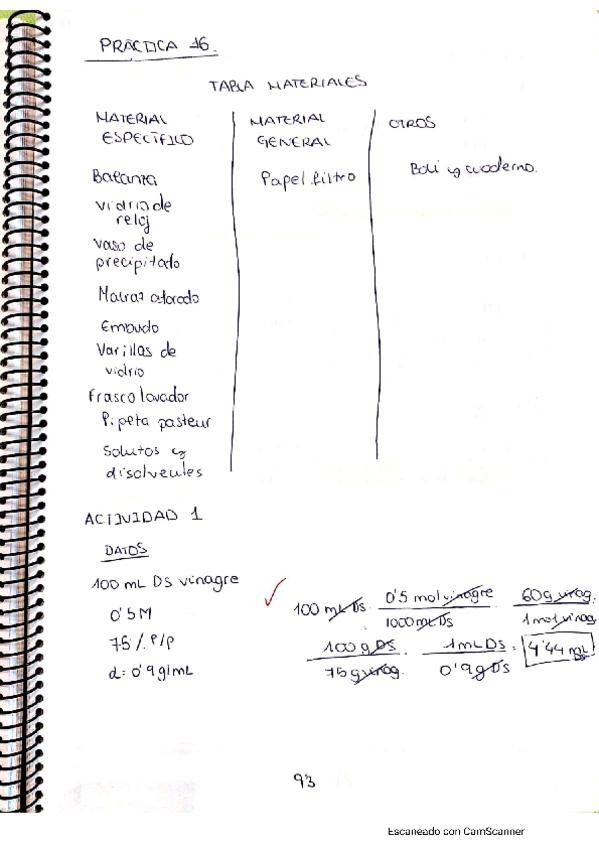 PRÁCTICA 16.
TABLA MATERIALES
MATERIAL ESPECÍFICO
Balanza
vidrio de
reloj
vaso de
precipitado
Matraz aforado
Embudo
Varillas de
vidrio
Frasco lavador
Pipeta pasteur
Solutos y
disolventes
MATERIAL
GENERAL
Papel filtro
OTROS
Boli y cuaderno.
ACTIVIDAD 1
DATOS
100 mL DS vinagre
0'5 M
75 % P/P
d: 0'9 g/mL
100 mL DS · 0'5 mol vinagre / 1000 mL DS · 60 g vinag. / 1 mol vinag
100 g DS / 75 g vinag. · 1 mL DS / 0'9 g DS = 4'44 mL
93
Escaneado con CamScanner